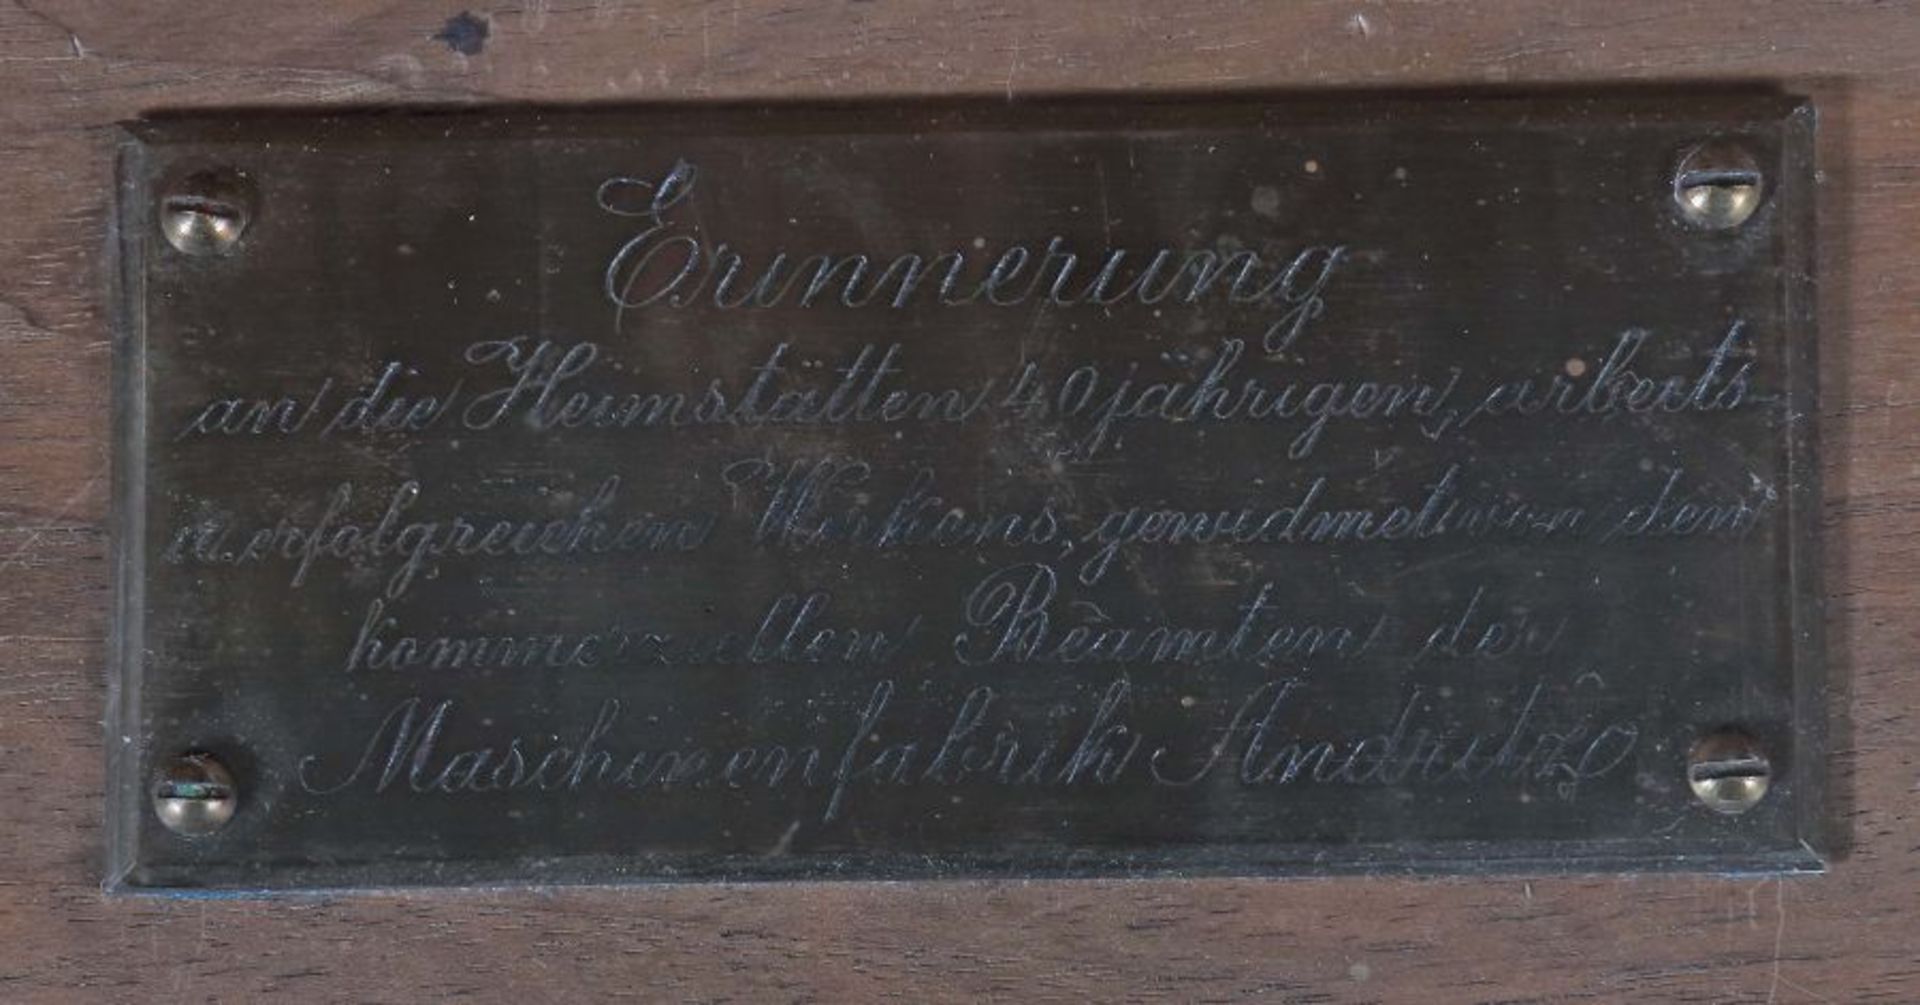 Erinnerung
an die Heimstätten 40jährigen, arbeits-
u. erfolgreichen Wirkens, gewidmet von den
kommerziellen Beamten der
Maschinenfabrik Andritz